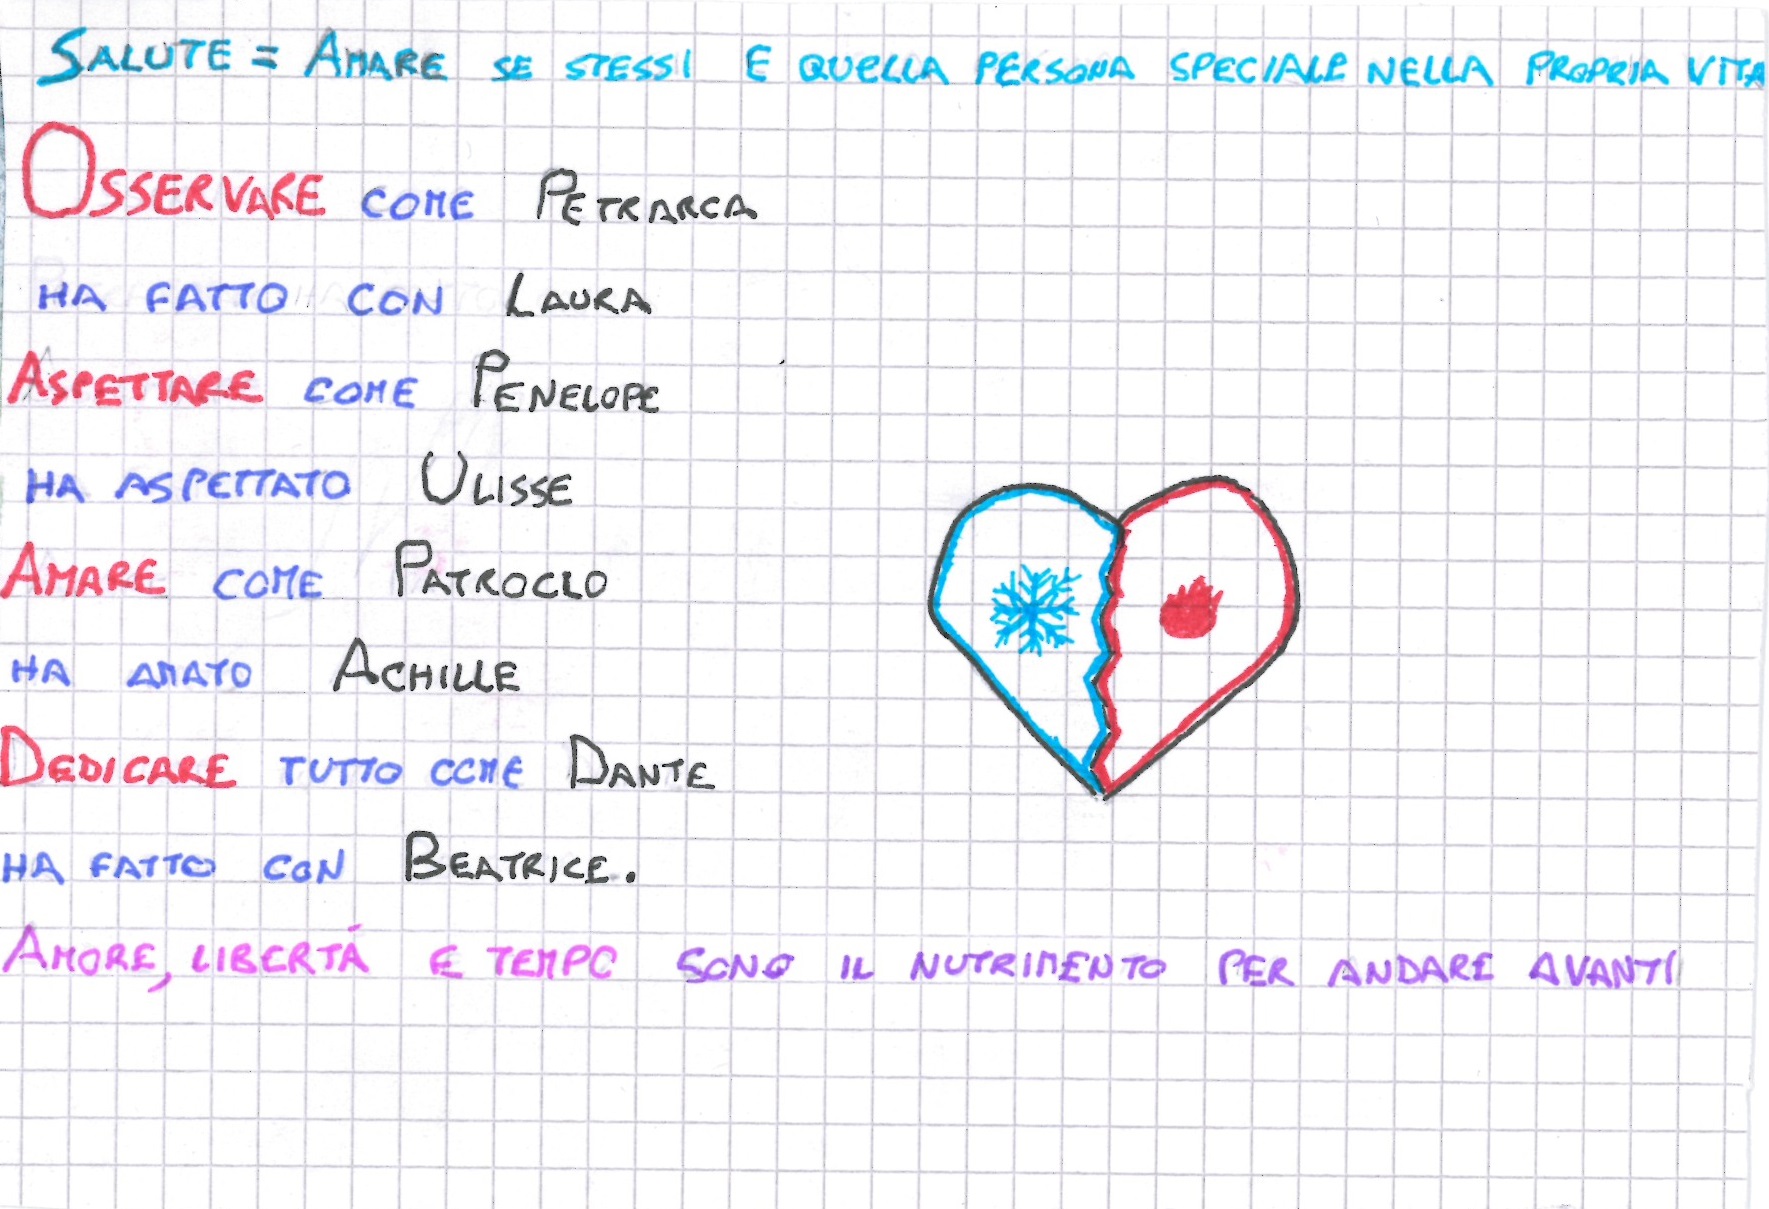 SALUTE = AMARE SE STESSI E QUELLA PERSONA SPECIALE NELLA PROPRIA VITA
OSSERVARE COME PETRARCA
HA FATTO CON LAURA
ASPETTARE COME PENELOPE
HA ASPETTATO ULISSE
AMARE COME PATROCLO
HA AMATO ACHILLE
DEDICARE TUTTO COME DANTE
HA FATTO CON BEATRICE.
AMORE, LIBERTÁ E TEMPO SONO IL NUTRIMENTO PER ANDARE AVANTI